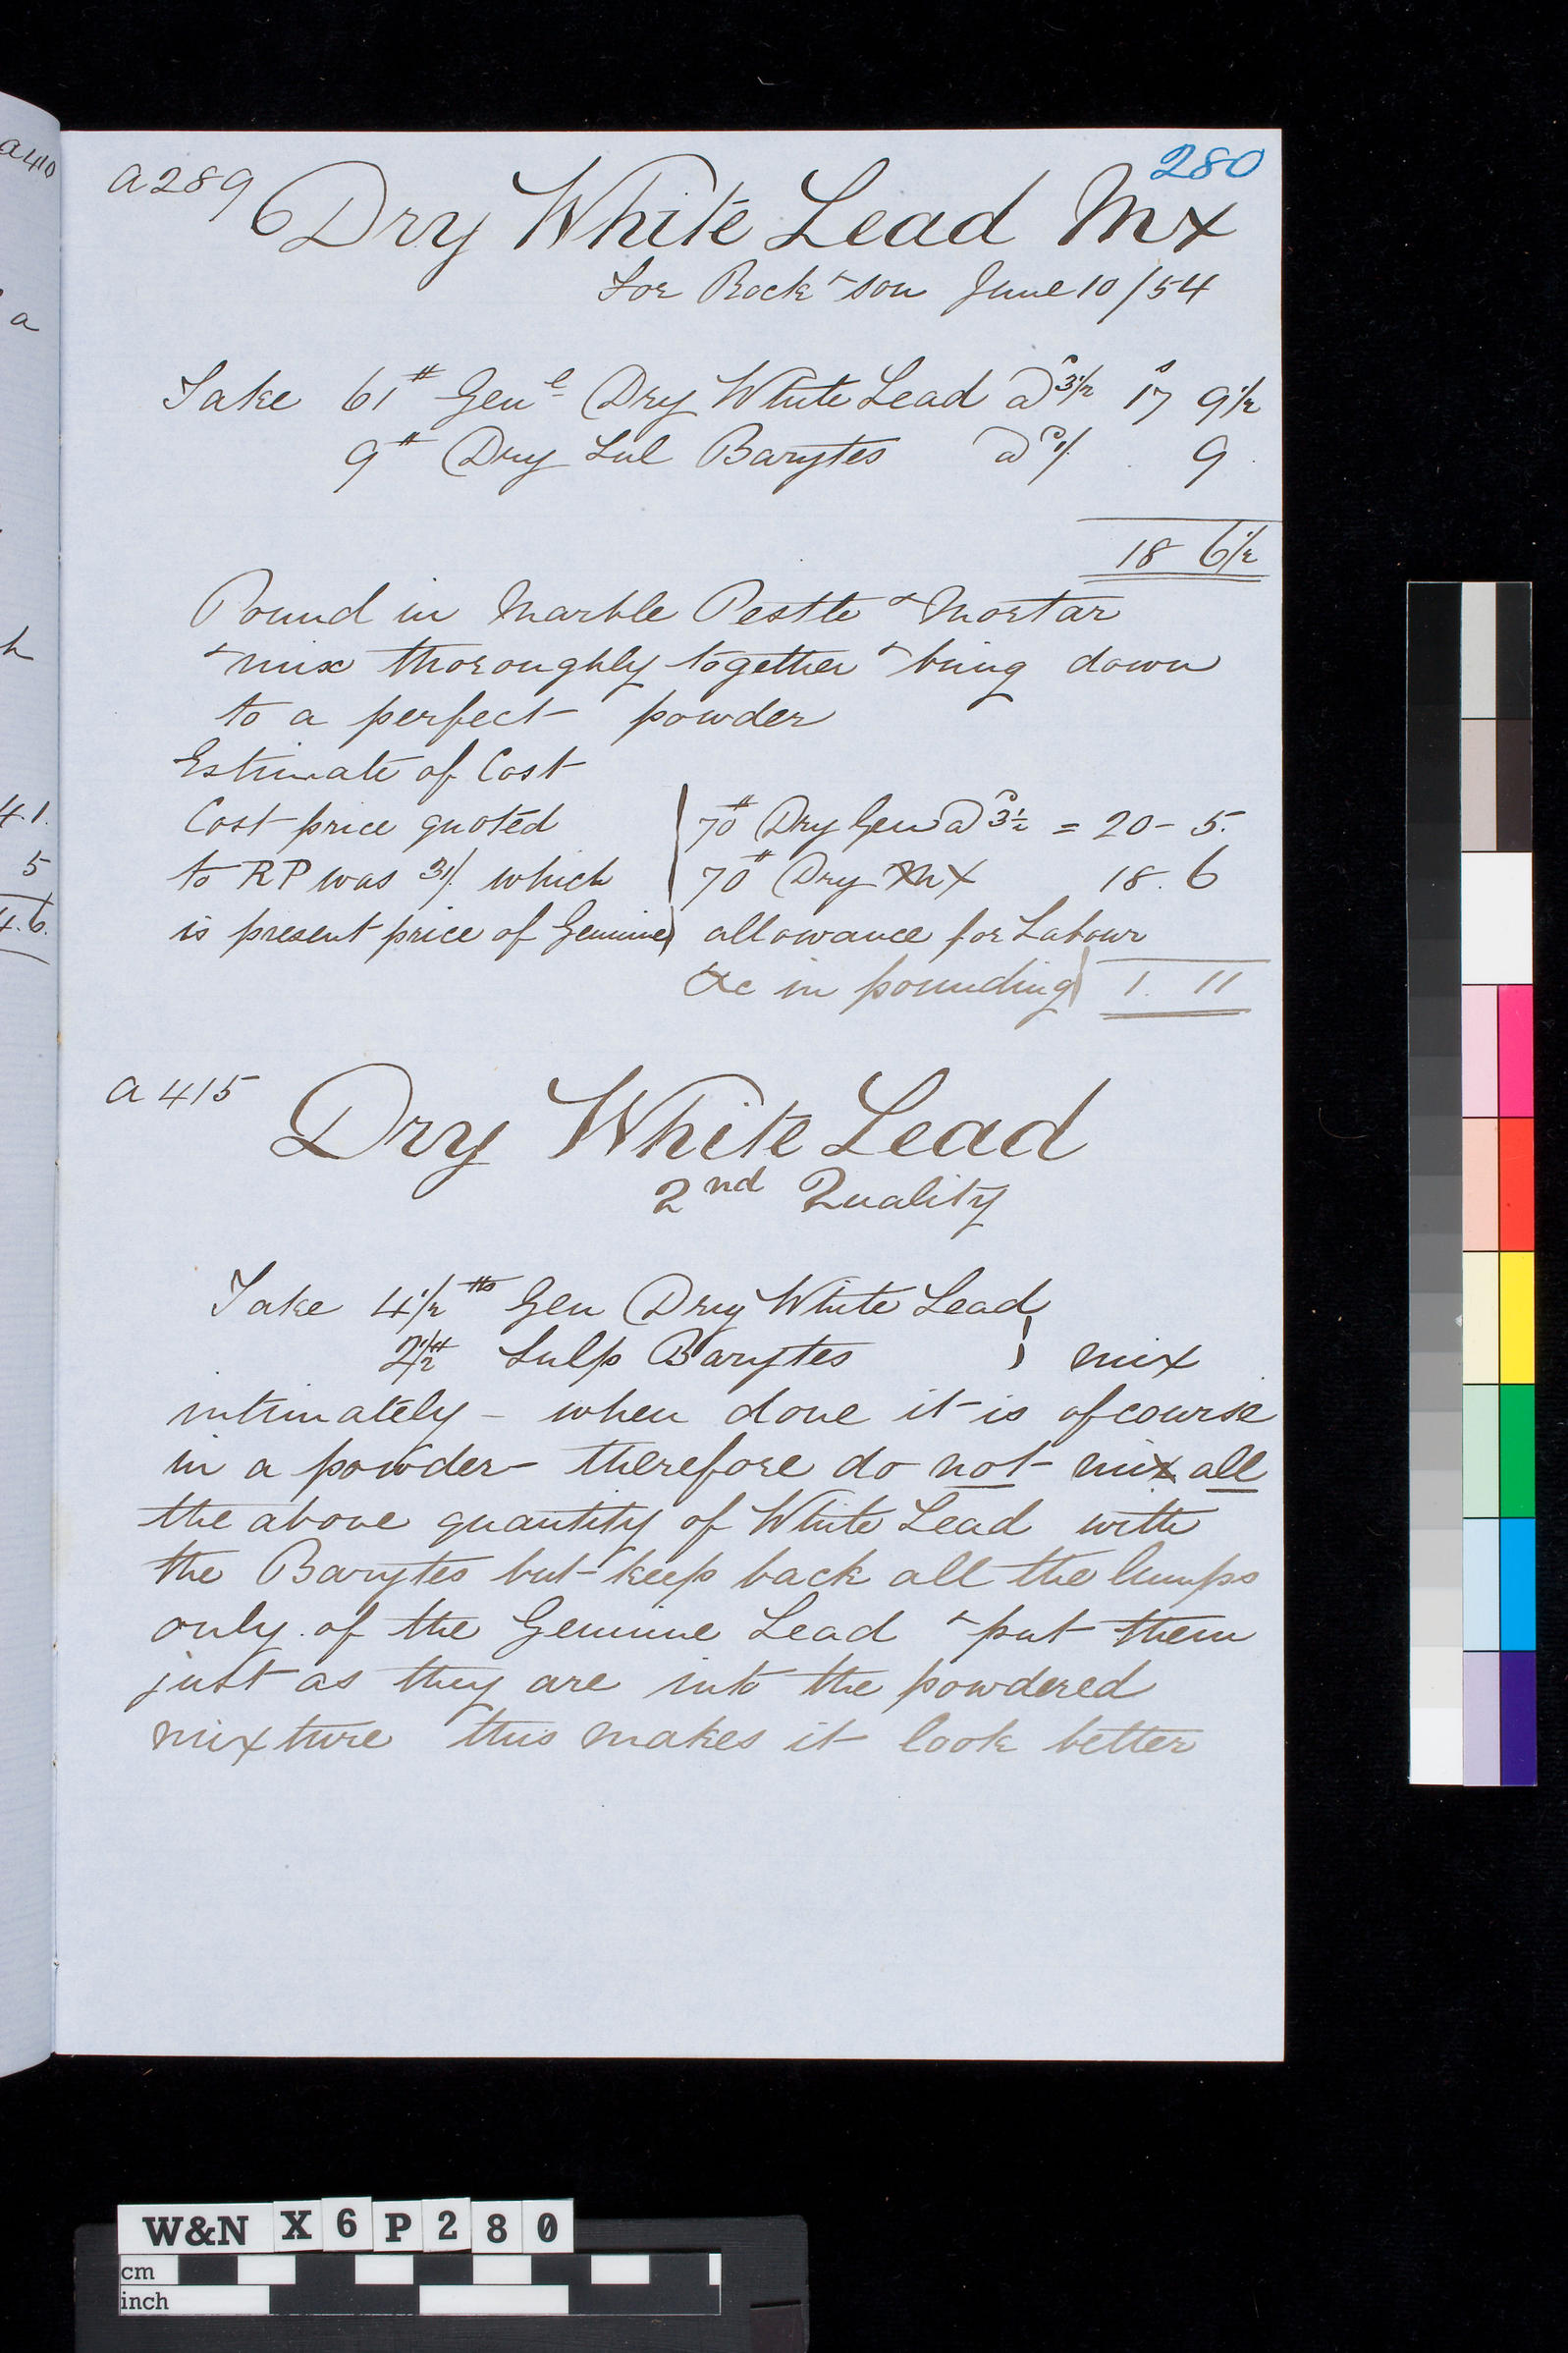 280
a289 Dry White Lead Mx
For Rock & Son June 10/54
Take 61# Gene Dry White Lead @ d3½ s17 9½
9# Dry Sul Barytes @ d1/. 9
18 6½
Pound in Marble Pestle & Mortar
& mix thoroughly together & bring down
to a perfect powder
Estimate of Cost
Cost price quoted
to RP was 31/. which
is present price of Genuine
70# Dry Gen @ d3½ = 20 - 5.
70# Dry Mx 18. 6
allowance for Labour
&c in pounding 1. 11
a415 Dry White Lead
2nd Quality
Take 4½ lbs Gen Dry White Lead
2½# Sulp Barytes } mix
intimately - when done it is of course
in a powder - therefore do not mix all
the above quantity of White Lead with
the Barytes but keep back all the lumps
only of the Genuine Lead & put them
just as they are into the powdered
mixture this makes it look better
a410
a
h
4.1.
5
4.6.
W&N X6P280
cm
inch